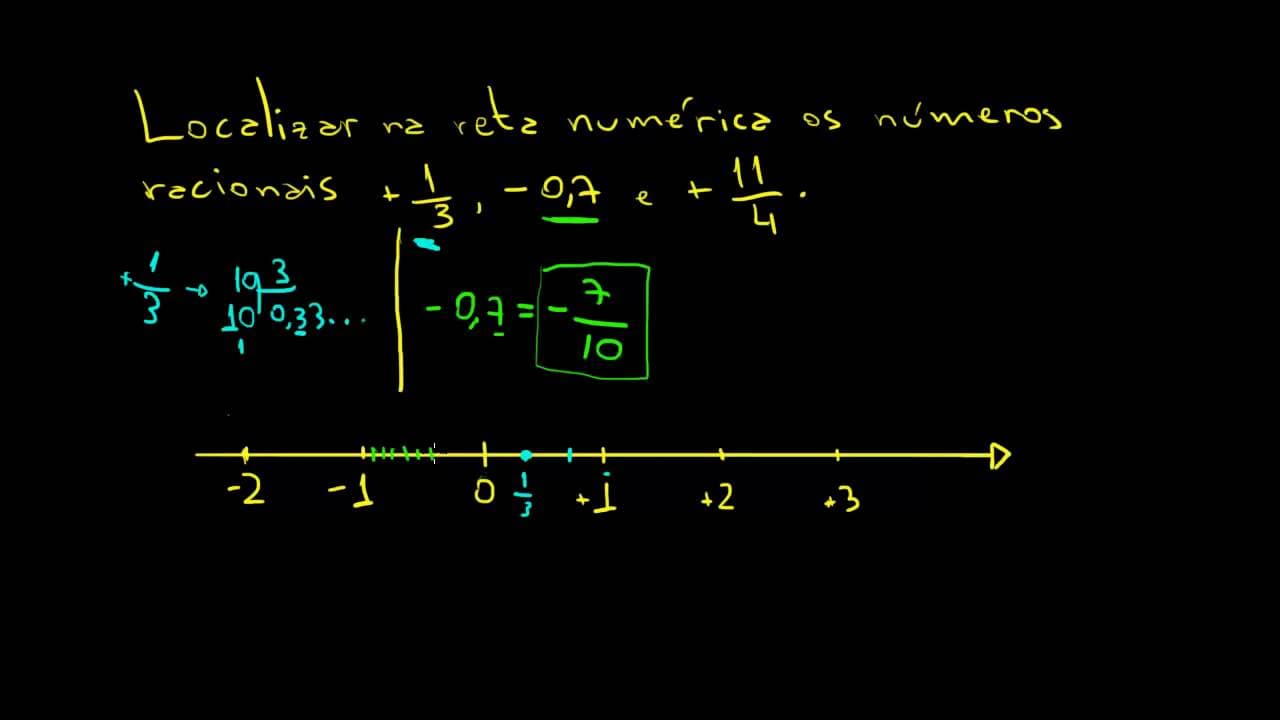 Localizar na reta numérica os números
racionais + 1/3, - 0,7 e + 11/4.
+ 1/3 → 10 3
10 0,33...
1
- 0,7 = - 7/10
-2 -1 0 1/3 +1 +2 +3